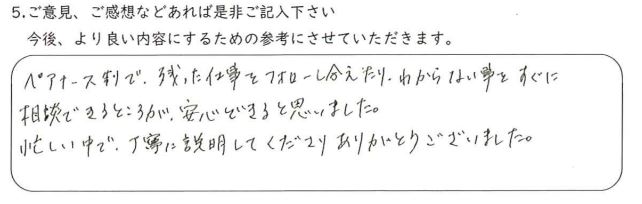 5.ご意見、ご感想などあれば是非ご記入下さい
今後、より良い内容にするための参考にさせていただきます。
ペアナース制で、残った仕事をフォローし合えたり、わからない事をすぐに
相談できるところが、安心できると思いました。
忙しい中で、丁寧に説明してくださりありがとうございました。